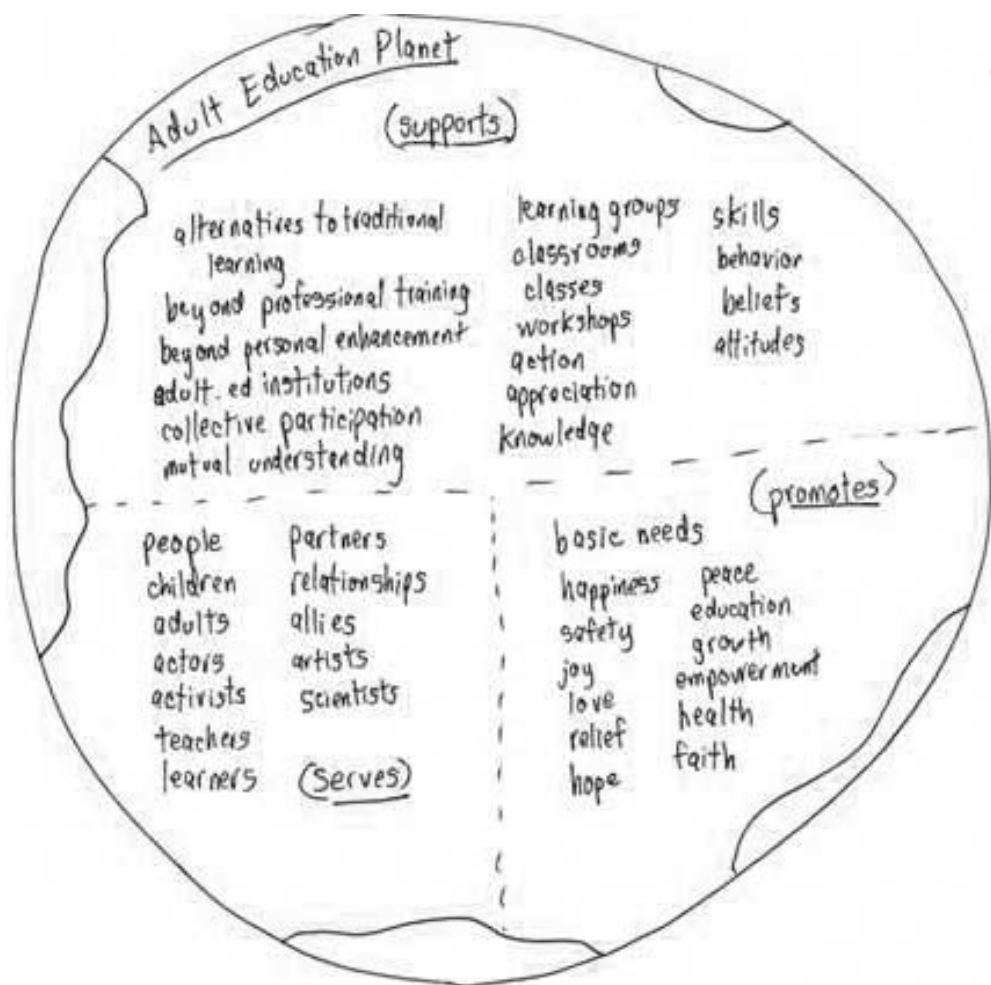 Adult Education Planet
(supports)
alternatives to traditional
learning
beyond professional training
beyond personal enhancement
adult. ed institutions
collective participation
mutual understanding
learning groups
classrooms
classes
workshops
action
appreciation
knowledge
skills
behavior
beliefs
attitudes
people
children
adults
actors
activists
teachers
learners
partners
relationships
allies
artists
scientists
(serves)
(promotes)
basic needs
happiness
safety
joy
love
relief
hope
peace
education
growth
empowerment
health
faith